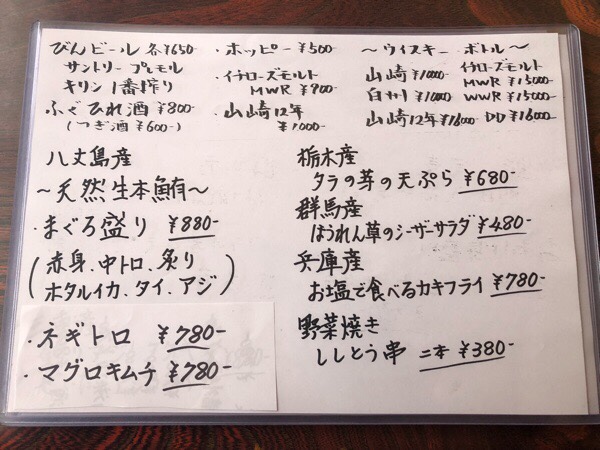 びんビール 各¥650
サントリー プレモル
キリン 1番搾り
ふぐひれ酒 ¥800
(つぎ酒 ¥600)
・ホッピー ¥500
・イチローズモルト
MWR ¥900
・山崎12年
¥1000
～ウイスキー ボトル～
山崎 ¥11000
白州 ¥10000
山崎12年 ¥16000
イチローズモルト
MWR ¥15000
WWR ¥15000
DD ¥16000
八丈島産
～天然生本鮪～
・まぐろ盛り ¥880-
(赤身、中トロ、炙り
ホタルイカ、タイ、アジ)
・ネギトロ ¥780-
・マグロキムチ ¥780-
栃木産
タラの芽の天ぷら ¥680-
群馬産
ほうれん草のシーザーサラダ ¥480-
兵庫産
お塩で食べるカキフライ ¥780-
野菜焼き
ししとう串 二本 ¥380-